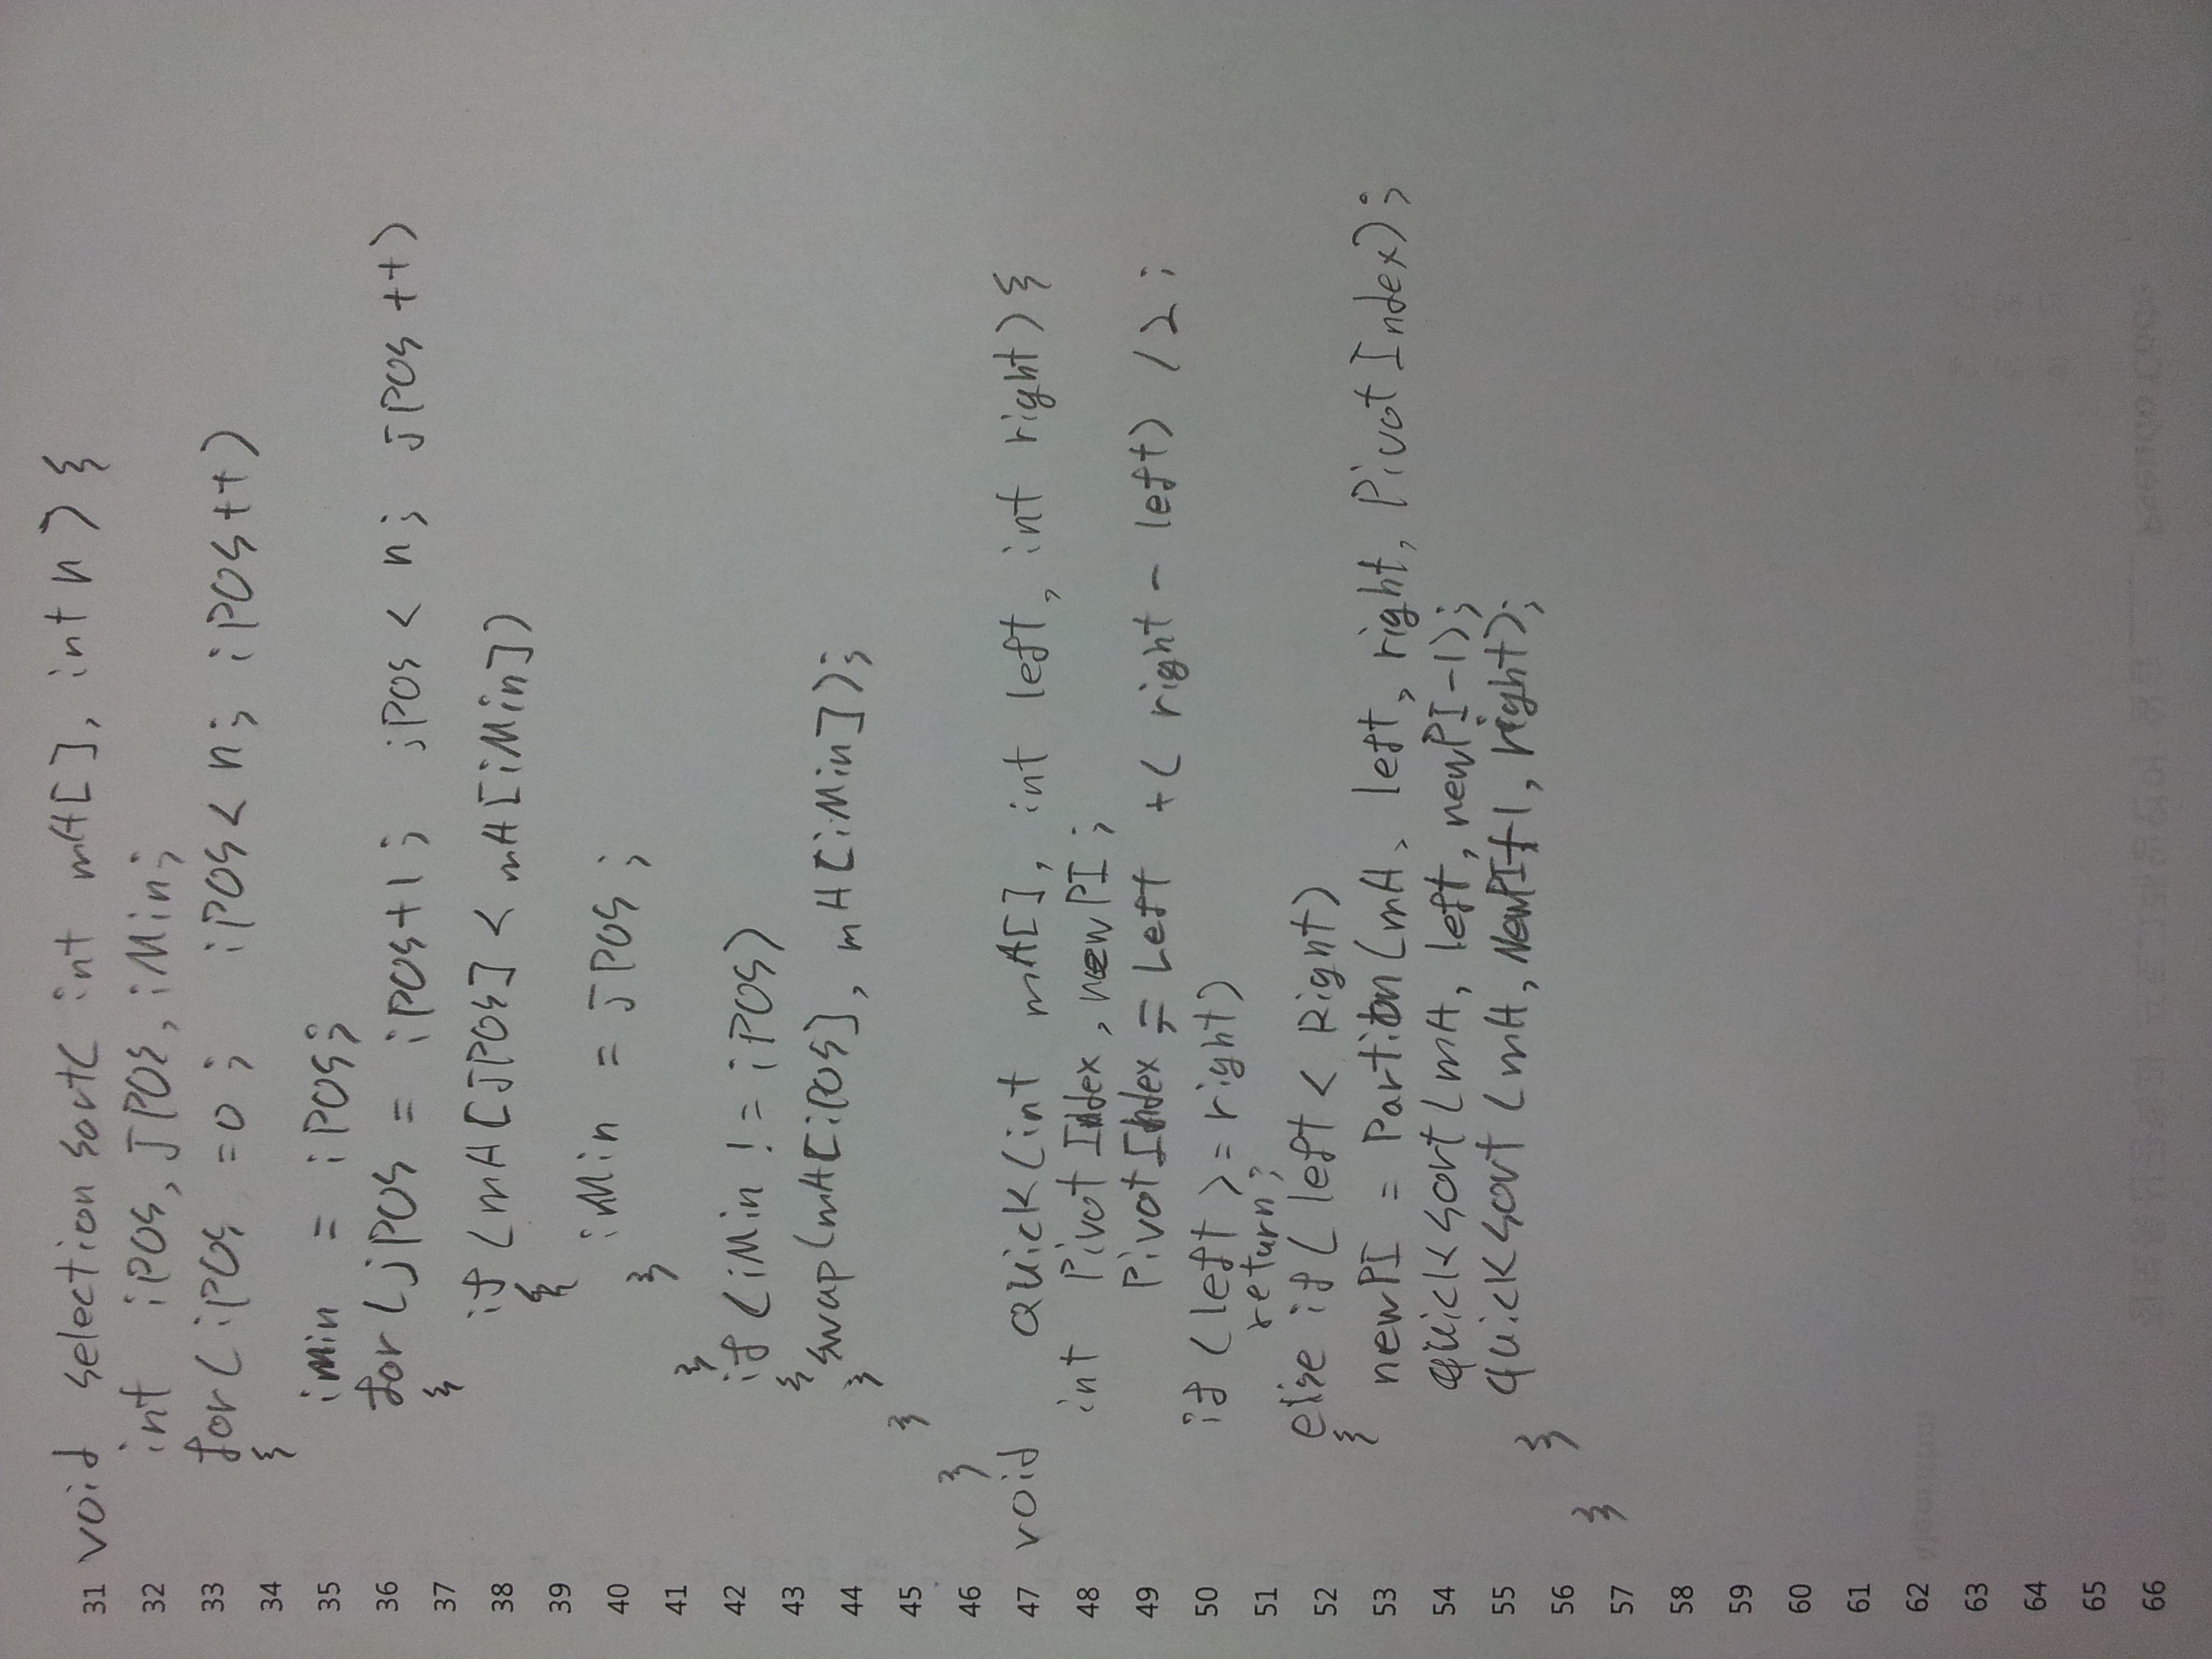 31 void selection sort( int mA[], int n ) {
32 int iPos, JPos, iMin;
33 for( iPos =0 ; iPos < n; iPos ++)
34 {
35 iMin = iPos;
36 for (jPos = iPos+1 ; jPos < n; JPos ++)
37 {
38 if (mA[JPos] < mA[iMin])
39 {
40 iMin = JPos ;
41 }
42 } if (iMin != iPos)
43 {
44 } swap(mA[iPos], mA[iMin]);
45 }
46 }
47 void Quick(int mA[], int left, int right) {
48 int Pivot Index, newPI ;
49 Pivot Index = Left + ( right - left) / 2 ;
50 if (left >= right)
51 return;
52 else if( left < Right)
53 { newPI = Partition(mA, left, right, Pivot Index) ;
54 quick sort(mA, left, newPI-1);
55 quick sort (mA, NewPI+1, right);
56 }
57 }
58
59
60
61
62
63
64
65
66